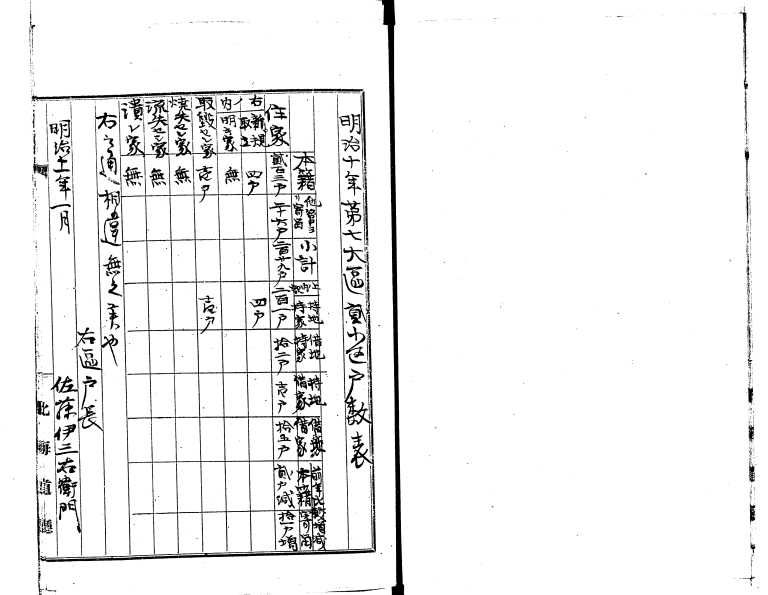 明治十年第七大區貳小区戸数表
本籍
他管ヨリ寄留
小計
持地持家
借地持家
持地借家
借地借家
前年比較増減
本籍
寄留
住家
貳百三戸
二十六戸
二百廿九戸
二百一戸
拾二戸
壱戸
拾五戸
貳戸減
拾一戸増
右ノ内
新規取立
四戸
四戸
明キ家
無
取毀セシ家
壱戸
壱戸
焼失セシ家
無
流失セシ家
無
潰レ家
無
右之通相違無之候也
右區戸長
明治十一年一月
佐藤伊三右衛門
北海道廳